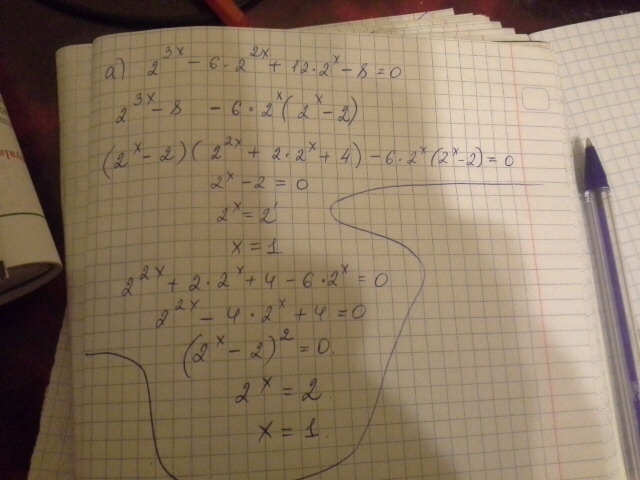 а) 2^{3x} - 6 · 2^{2x} + 12 · 2^x - 8 = 0
2^{3x} - 8 - 6 · 2^x (2^x - 2)
(2^x - 2)(2^{2x} + 2 · 2^x + 4) - 6 · 2^x (2^x - 2) = 0
2^x - 2 = 0
2^x = 2^1
x = 1
2^{2x} + 2 · 2^x + 4 - 6 · 2^x = 0
2^{2x} - 4 · 2^x + 4 = 0
(2^x - 2)^2 = 0.
2^x = 2
x = 1.